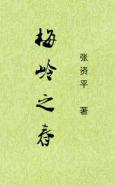 梅岭之春
张资平 著